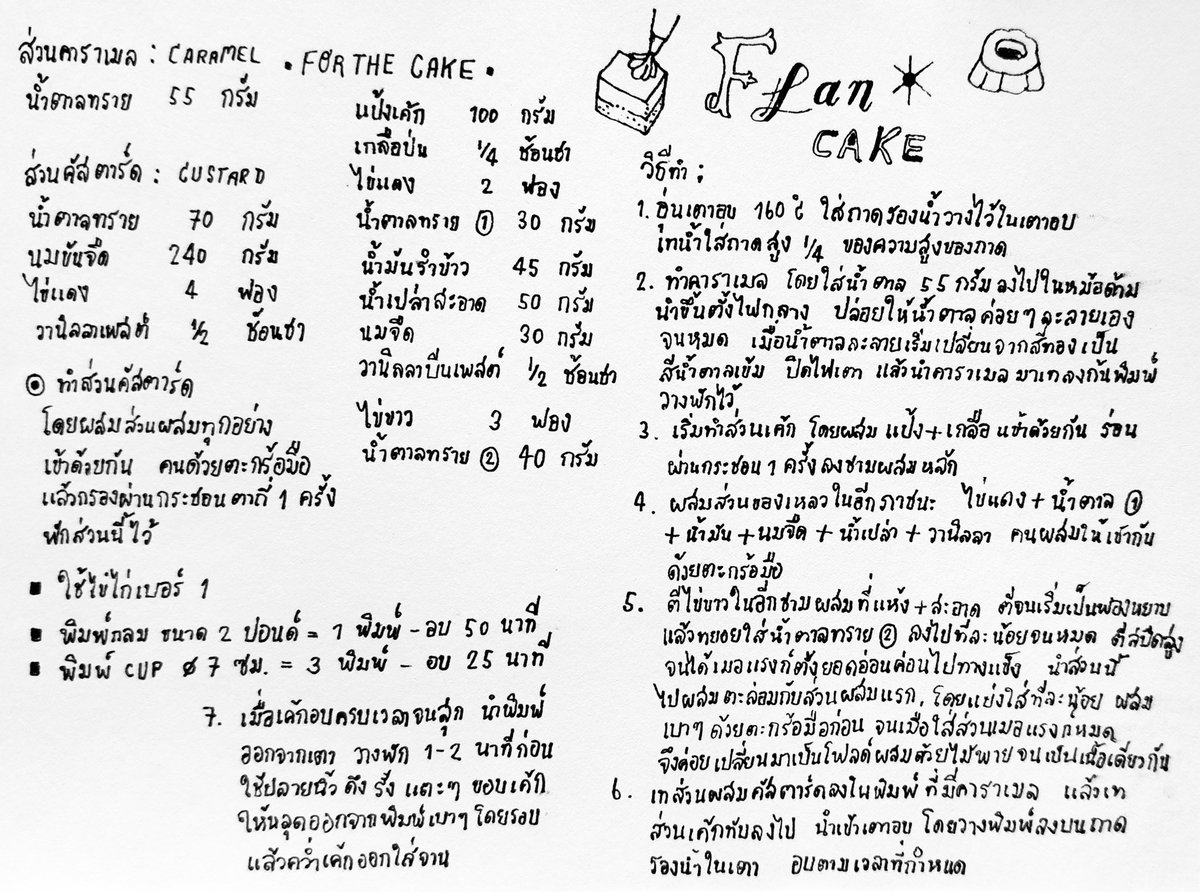 Flan
CAKE
ส่วนคาราเมล : CARAMEL
น้ำตาลทราย 55 กรัม
ส่วนคัสตาร์ด : CUSTARD
น้ำตาลทราย 70 กรัม
นมข้นจืด 240 กรัม
ไข่แดง 4 ฟอง
วานิลลาเพสต์ 1/2 ช้อนชา
ทำส่วนคัสตาร์ด
โดยผสมส่วนผสมทุกอย่าง
เข้าด้วยกัน คนด้วยตะกร้อมือ
แล้วกรองผ่านกระชอนตาถี่ 1 ครั้ง
พักส่วนนี้ไว้
• FOR THE CAKE •
แป้งเค้ก 100 กรัม
เกลือป่น 1/4 ช้อนชา
ไข่แดง 2 ฟอง
น้ำตาลทราย ① 30 กรัม
น้ำมันรำข้าว 45 กรัม
น้ำเปล่าสะอาด 50 กรัม
นมจืด 30 กรัม
วานิลลาบีนเพสต์ 1/2 ช้อนชา
ไข่ขาว 3 ฟอง
น้ำตาลทราย ② 40 กรัม
▪ ใช้ไข่ไก่เบอร์ 1
▪ พิมพ์กลม ขนาด 2 ปอนด์ = 1 พิมพ์ - อบ 50 นาที
▪ พิมพ์ CUP ø 7 ซม. = 3 พิมพ์ - อบ 25 นาที
วิธีทำ :
1. อุ่นเตาอบ 160 °c ใส่ถาดรองน้ำวางไว้ในเตาอบ
เทน้ำใส่ถาดสูง 1/4 ของความสูงของถาด
2. ทำคาราเมล โดยใส่น้ำตาล 55 กรัมลงไปในหม้อด้าม
นำขึ้นตั้งไฟกลาง ปล่อยให้น้ำตาลค่อยๆละลายเอง
จนหมด เมื่อน้ำตาลละลายเริ่มเปลี่ยนจากสีทองเป็น
สีน้ำตาลเข้ม ปิดไฟเตา แล้วนำคาราเมลมาเทลงก้นพิมพ์
วางพักไว้
3. เริ่มทำส่วนเค้ก โดยผสม แป้ง + เกลือ เข้าด้วยกัน ร่อน
ผ่านกระชอน 1 ครั้งลงชามผสมหลัก
4. ผสมส่วนของเหลวในอีกภาชนะ ไข่แดง + น้ำตาล ①
+ น้ำมัน + นมจืด + น้ำเปล่า + วานิลลา คนผสมให้เข้ากัน
ด้วยตะกร้อมือ
5. ตีไข่ขาวในอีกชามผสมที่แห้ง + สะอาด ตีจนเริ่มเป็นฟองหยาบ
แล้วทยอยใส่น้ำตาลทราย ② ลงไปทีละน้อยจนหมด ตีสปีดสูง
จนได้เมอแรงก์ตั้งยอดอ่อนค่อนไปทางแข็ง นำส่วนนี้
ไปผสมตะล่อมกับส่วนผสมแรก, โดยแบ่งใส่ทีละน้อย ผสม
เบาๆ ด้วยตะกร้อมือก่อน จนเมื่อใส่ส่วนเมอแรงก์หมด
จึงค่อยเปลี่ยนมาเป็นโฟลด์ผสมด้วยไม้พายจนเป็นเนื้อเดียวกัน
6. เทส่วนผสมคัสตาร์ดลงในพิมพ์ที่มีคาราเมล แล้วเท
ส่วนเค้กทับลงไป นำเข้าเตาอบ โดยวางพิมพ์ลงบนถาด
รองน้ำในเตา อบตามเวลาที่กำหนด
7. เมื่อเค้กอบครบเวลาจนสุก นำพิมพ์
ออกจากเตา วางพัก 1-2 นาทีก่อน
ใช้ปลายนิ้ว ดึง รั้ง แตะๆ ขอบเค้ก
ให้หลุดออกจากพิมพ์เบาๆ โดยรอบ
แล้วคว่ำเค้กออกใส่จาน